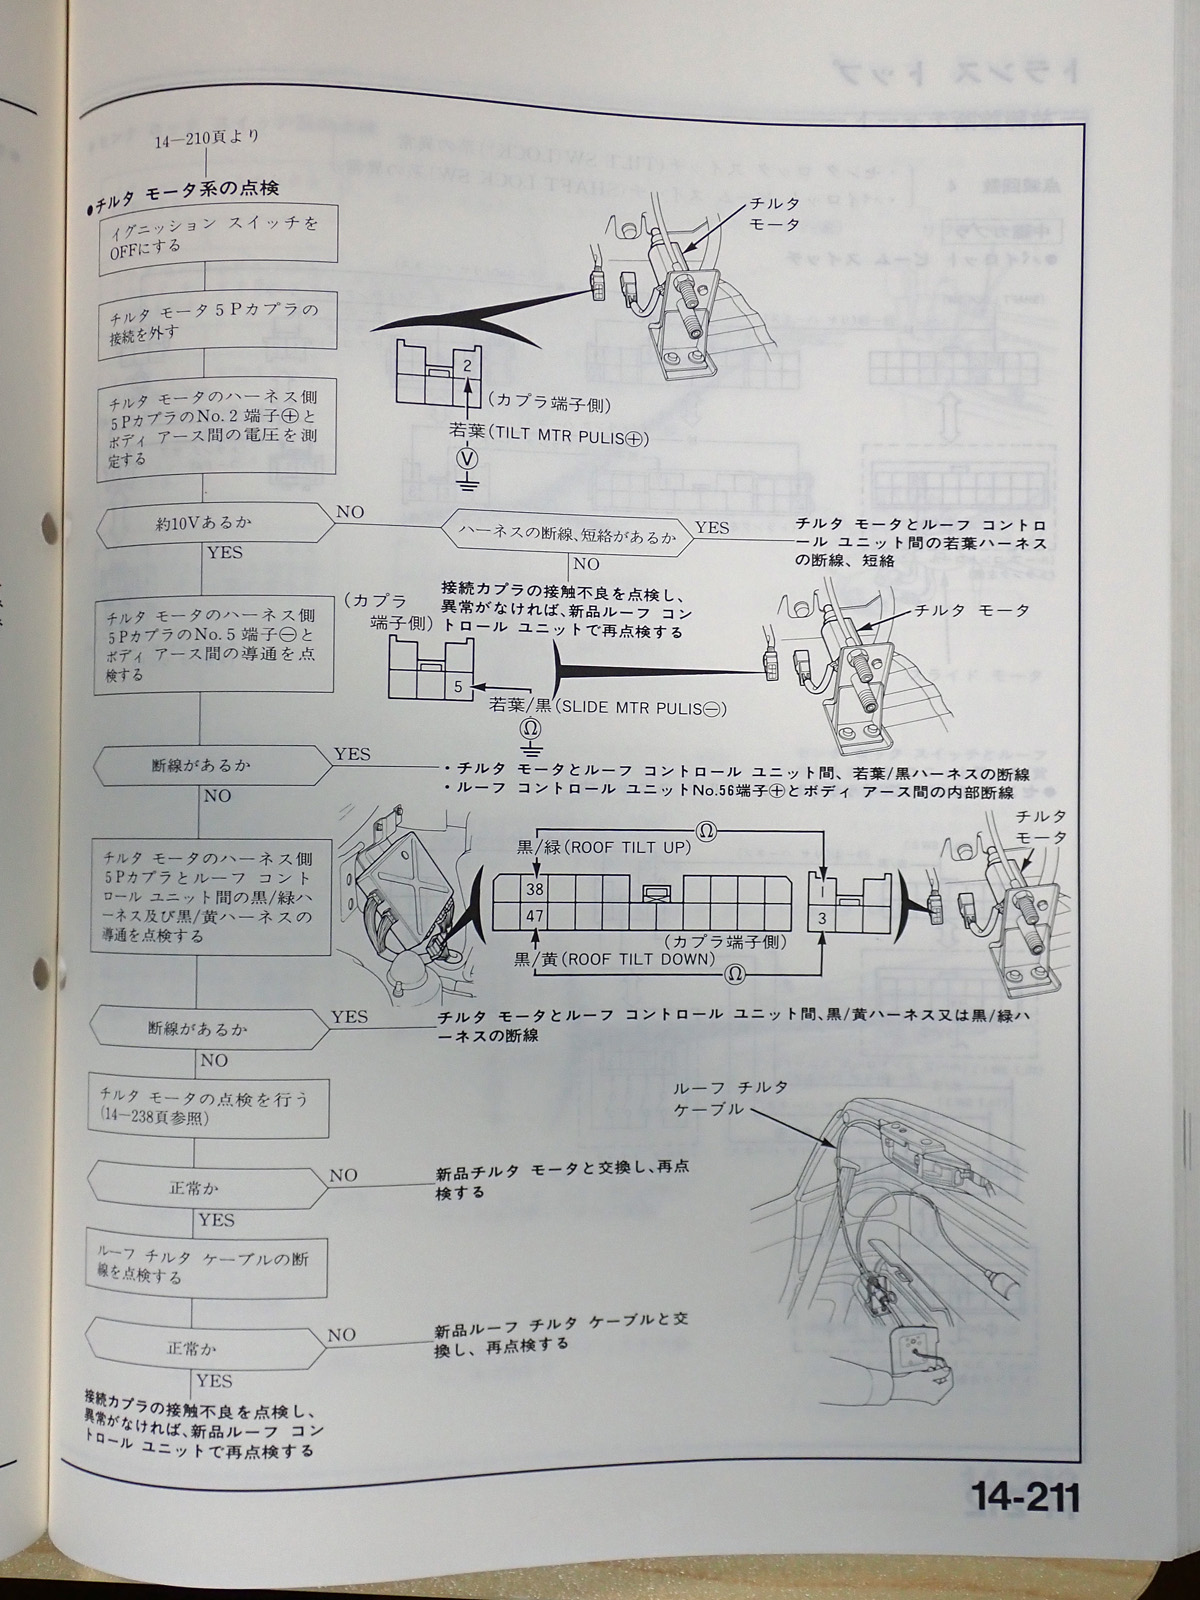 14―210頁より
●チルタ モータ系の点検
イグニッション スイッチを
OFFにする
チルタ モータ5Pカプラの
接続を外す
チルタ モータのハーネス側
5PカプラのNo.2端子⊕と
ボディ アース間の電圧を測
定する
約10Vあるか
NO
YES
ハーネスの断線、短絡があるか
YES
NO
チルタ モータとルーフ コントロ
ール ユニット間の若葉ハーネス
の断線、短絡
接続カプラの接触不良を点検し、
異常がなければ、新品ルーフ コン
トロール ユニットで再点検する
チルタ
モータ
2
(カプラ端子側)
若葉(TILT MTR PULIS⊕)
V
チルタ モータのハーネス側
5PカプラのNo.5端子⊖と
ボディ アース間の導通を点
検する
(カプラ
端子側)
5
若葉/黒(SLIDE MTR PULIS⊖)
Ω
チルタ モータ
断線があるか
YES
NO
・チルタ モータとルーフ コントロール ユニット間、若葉/黒ハーネスの断線
・ルーフ コントロール ユニットNo.56端子⊕とボディ アース間の内部断線
チルタ モータのハーネス側
5Pカプラとルーフ コント
ロール ユニット間の黒/緑ハ
ーネス及び黒/黄ハーネスの
導通を点検する
黒/緑(ROOF TILT UP)
Ω
38
47
1
3
(カプラ端子側)
黒/黄(ROOF TILT DOWN)
Ω
チルタ
モータ
断線があるか
YES
NO
チルタ モータとルーフ コントロール ユニット間、黒/黄ハーネス又は黒/緑ハ
ーネスの断線
チルタ モータの点検を行う
(14―238頁参照)
正常か
NO
YES
新品チルタ モータと交換し、再点
検する
ルーフ チルタ
ケーブル
ルーフ チルタ ケーブルの断
線を点検する
正常か
NO
YES
新品ルーフ チルタ ケーブルと交
換し、再点検する
接続カプラの接触不良を点検し、
異常がなければ、新品ルーフ コン
トロール ユニットで再点検する
14-211